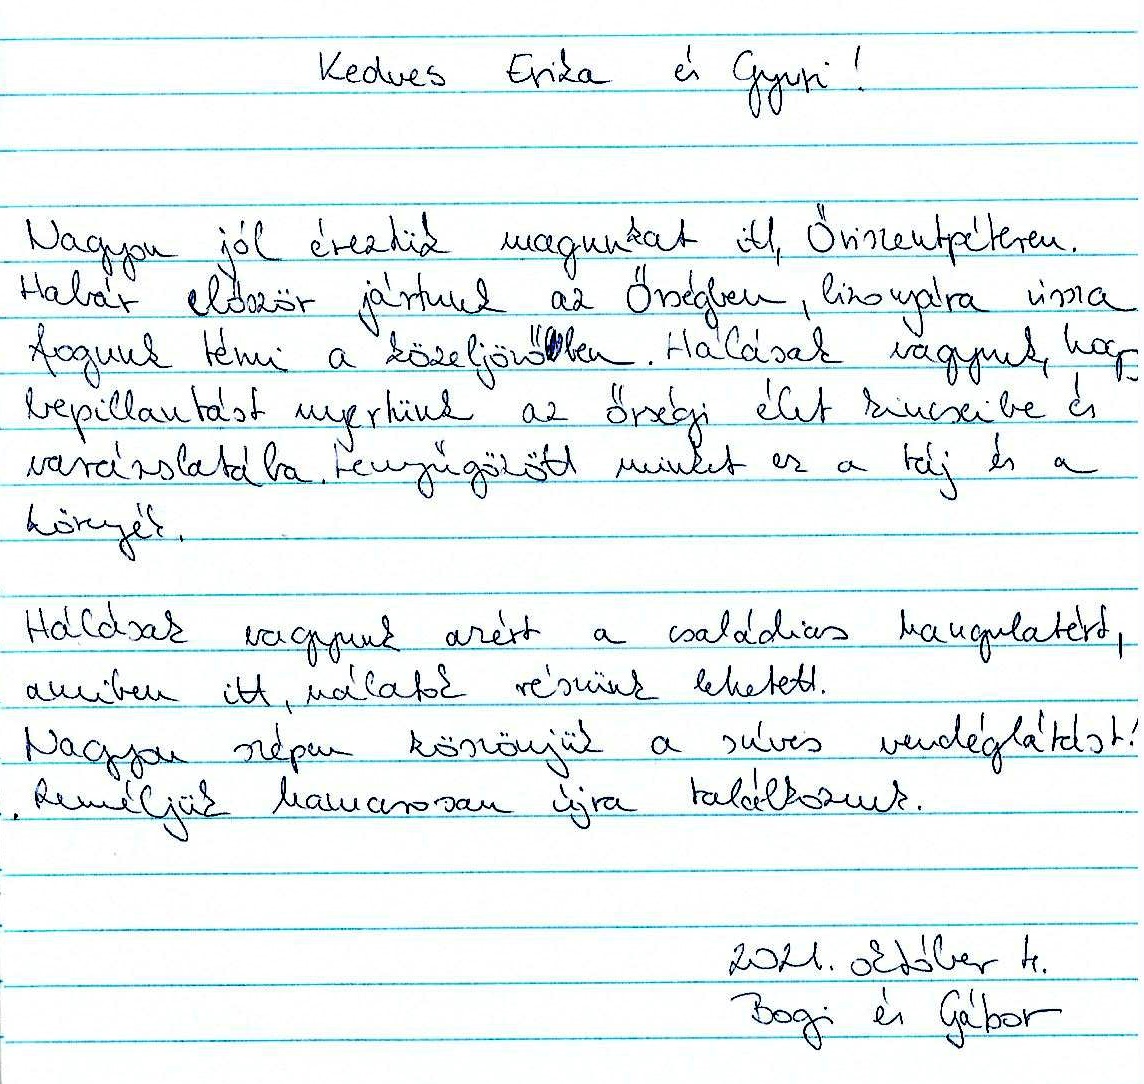 Kedves Erika és Gyuri!
Nagyon jól éreztük magunkat itt, Őriszentpéteren.
Habár először jártunk az Őrségben, bizonyára vissza
fogunk térni a közeljövőben. Hálásak vagyunk, hogy
bepillantást nyertünk az őrségi élet kincseibe és
varázslatába. Lenyűgözött minket ez a táj és a
környék.
Hálásak vagyunk azért a családias hangulatért,
amiben itt, nálatok részünk lehetett.
Nagyon szépen köszönjük a szíves vendéglátást!
Reméljük hamarosan újra találkozunk.
2021. október 4.
Bogi és Gábor